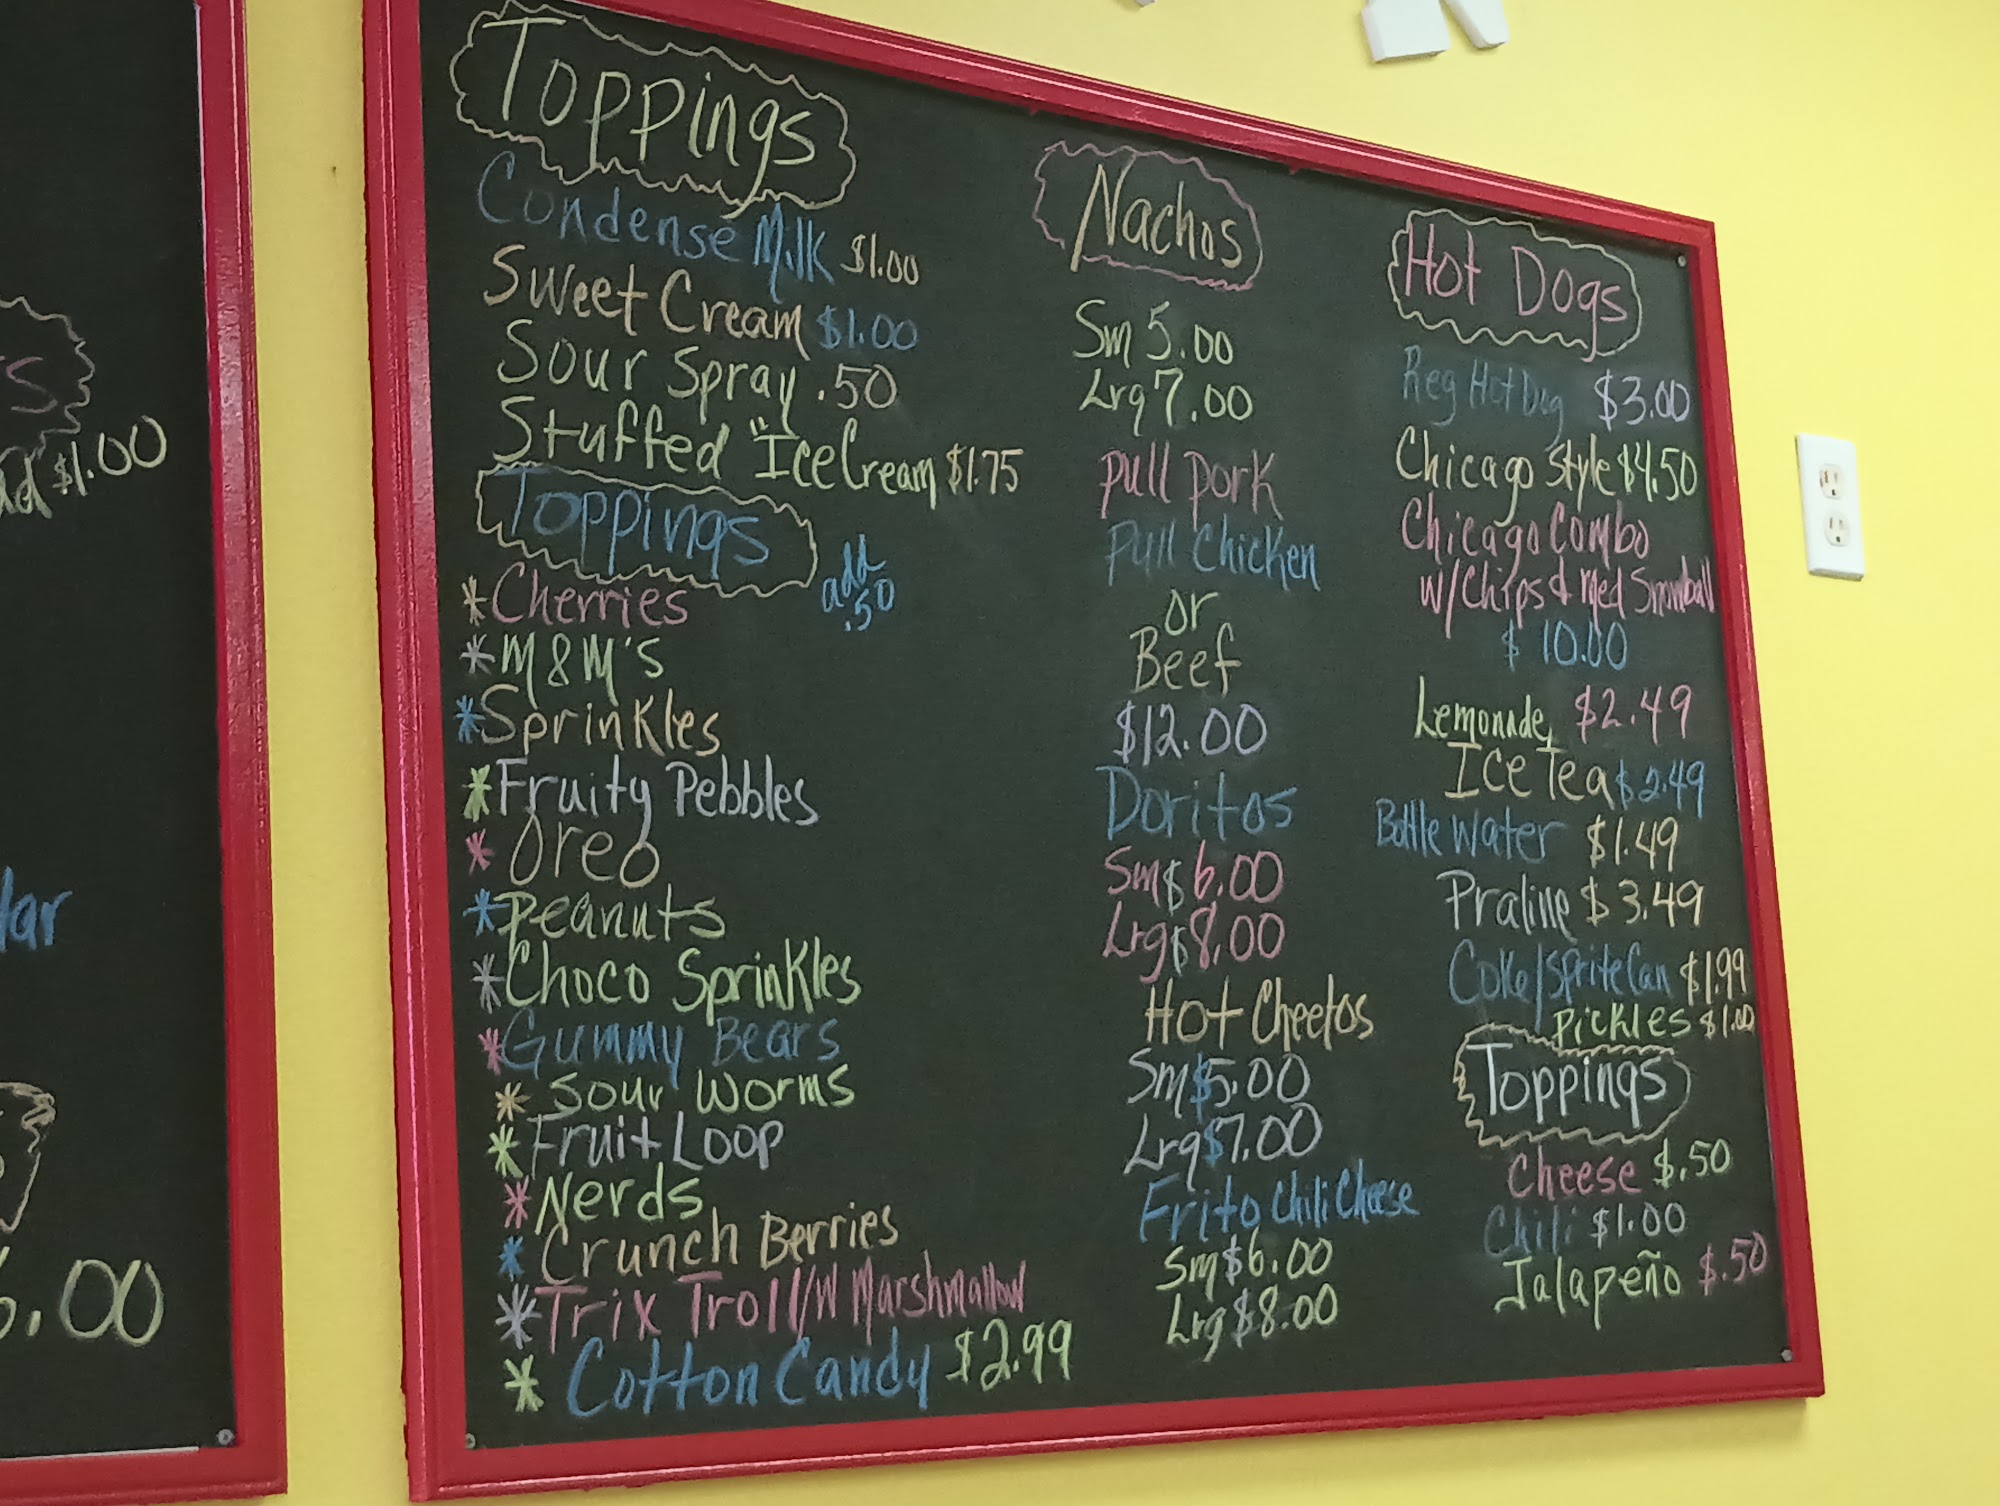 s
$1.00
lar
.00
Toppings
Condense Milk $1.00
Sweet Cream $1.00
Sour Spray .50
Stuffed "Ice Cream $1.75
Toppings
add
.50
*Cherries
*M&M's
*Sprinkles
*Fruity Pebbles
*Oreo
*Peanuts
*Choco Sprinkles
*Gummy Bears
* Sour Worms
*Fruit Loop
*Nerds
*Crunch Berries
*Trix Troll/W Marshmallow
* Cotton Candy $2.99
Nachos
Sm 5.00
Lrg 7.00
Pull Pork
Pull Chicken
or
Beef
$12.00
Doritos
Sm $6.00
Lrg $8.00
Hot Cheetos
Sm $5.00
Lrg $7.00
Frito Chili Cheese
Sm $6.00
Lrg $8.00
Hot Dogs
Reg Hot Dog $3.00
Chicago Style $4.50
Chicago Combo
w/Chips & Med Snowball
$10.00
Lemonade $2.49
Ice Tea $2.49
Bottle Water $1.49
Praline $3.49
Coke/Sprite Can $1.99
Pickles $1.00
Toppings
Cheese $.50
Chili $1.00
Jalapeño $.50